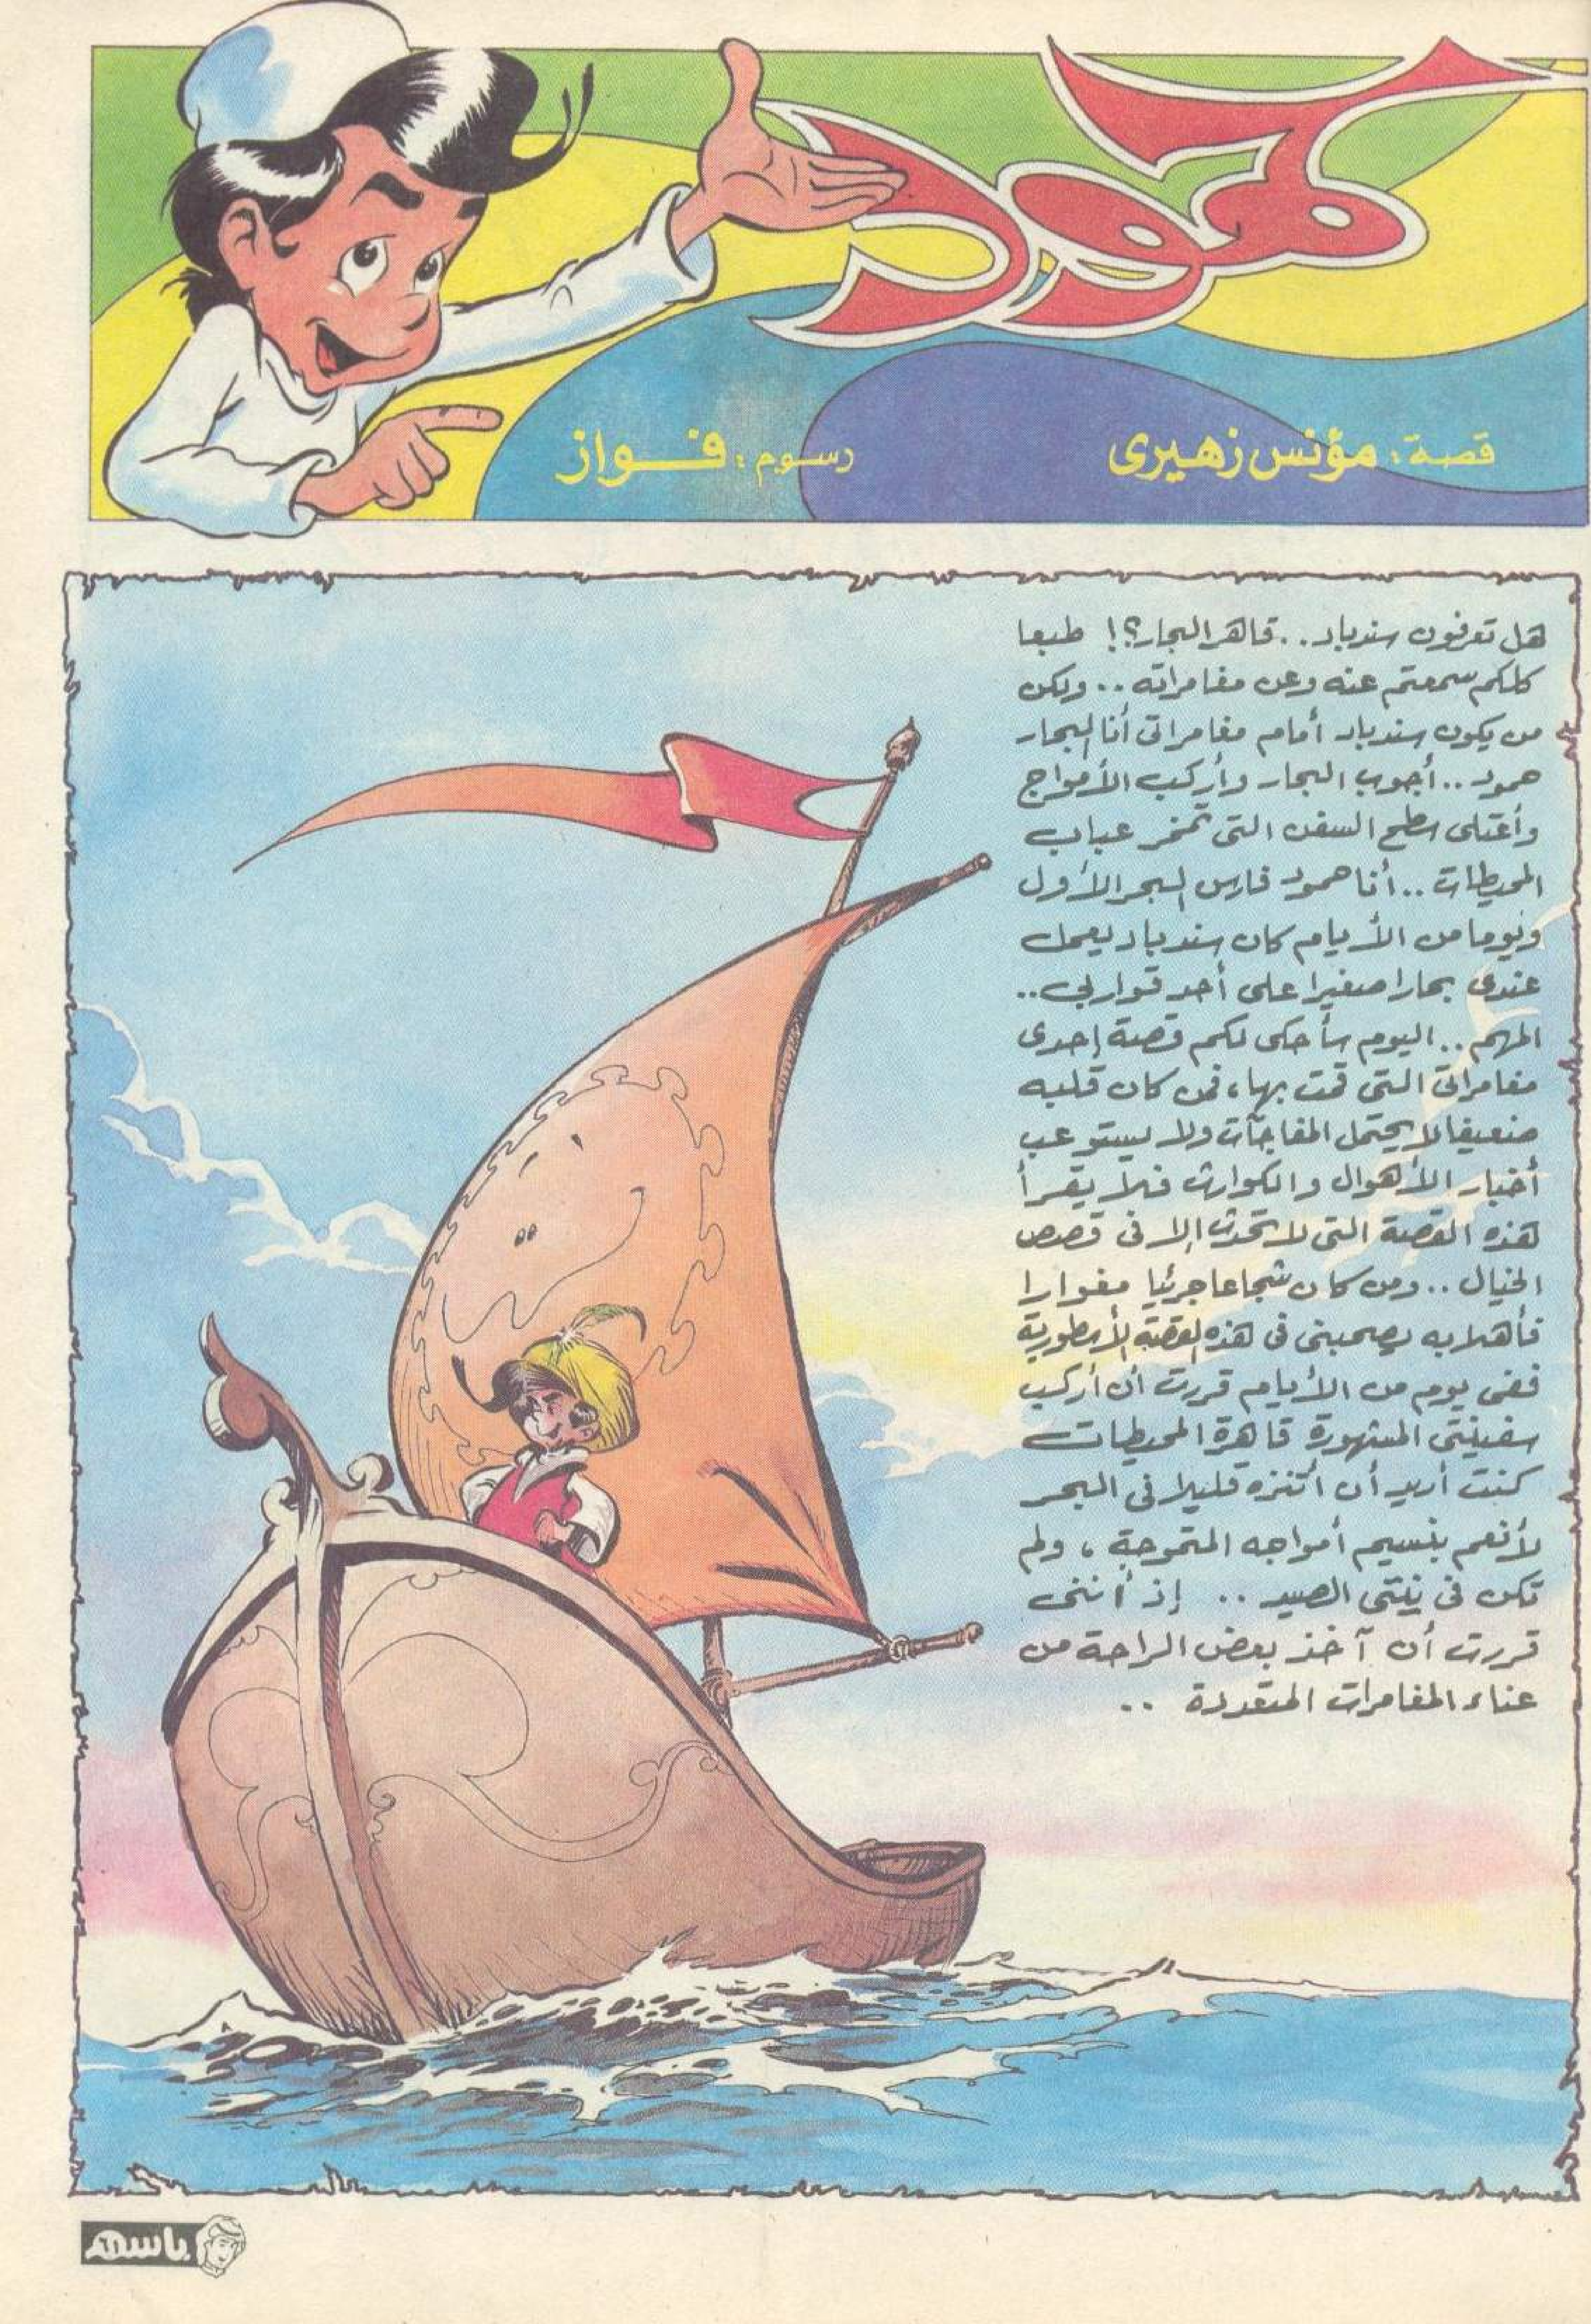 حمود
قصة: مؤنس زهيرى
رسوم: فواز
هل تعرفون سندباد.. قاهر البحار؟! طبعا
كلكم سمعتم عنه وعن مغامراته.. ولكن
من يكون سندباد أمام مغامراتى أنا البحار
حمود.. أجوب البحار وأركب الأمواج
وأعتلى سطح السفن التى تمخر عباب
المحيطات.. أنا حمود فارس البحر الأول
ويوما من الأيام كان سندباد يعمل
عندى بحارا صغيرا على أحد قواربى..
المهم.. اليوم سأحكى لكم قصة إحدى
مغامراتى التى قمت بها، فمن كان قلبه
ضعيفا لا يحتمل المفاجآت ولا يستوعب
أخبار الأهوال والكوارث فلا يقرأ
هذه القصة التى لا تحدث إلا فى قصص
الخيال.. ومن كان شجاعا جرئيا مغوارا
فأهلا به يصحبنى فى هذه القصة الأسطورية
ففى يوم من الأيام قررت أن أركب
سفينتى المشهورة قاهرة المحيطات
كنت أريد أن أتنزه قليلا فى البحر
لأنعم بنسيم أمواجه المتموجة، ولم
تكن فى نيتى الصيد.. إذ أننى
قررت أن آخذ بعض الراحة من
عناء المغامرات المتعددة..
باسم